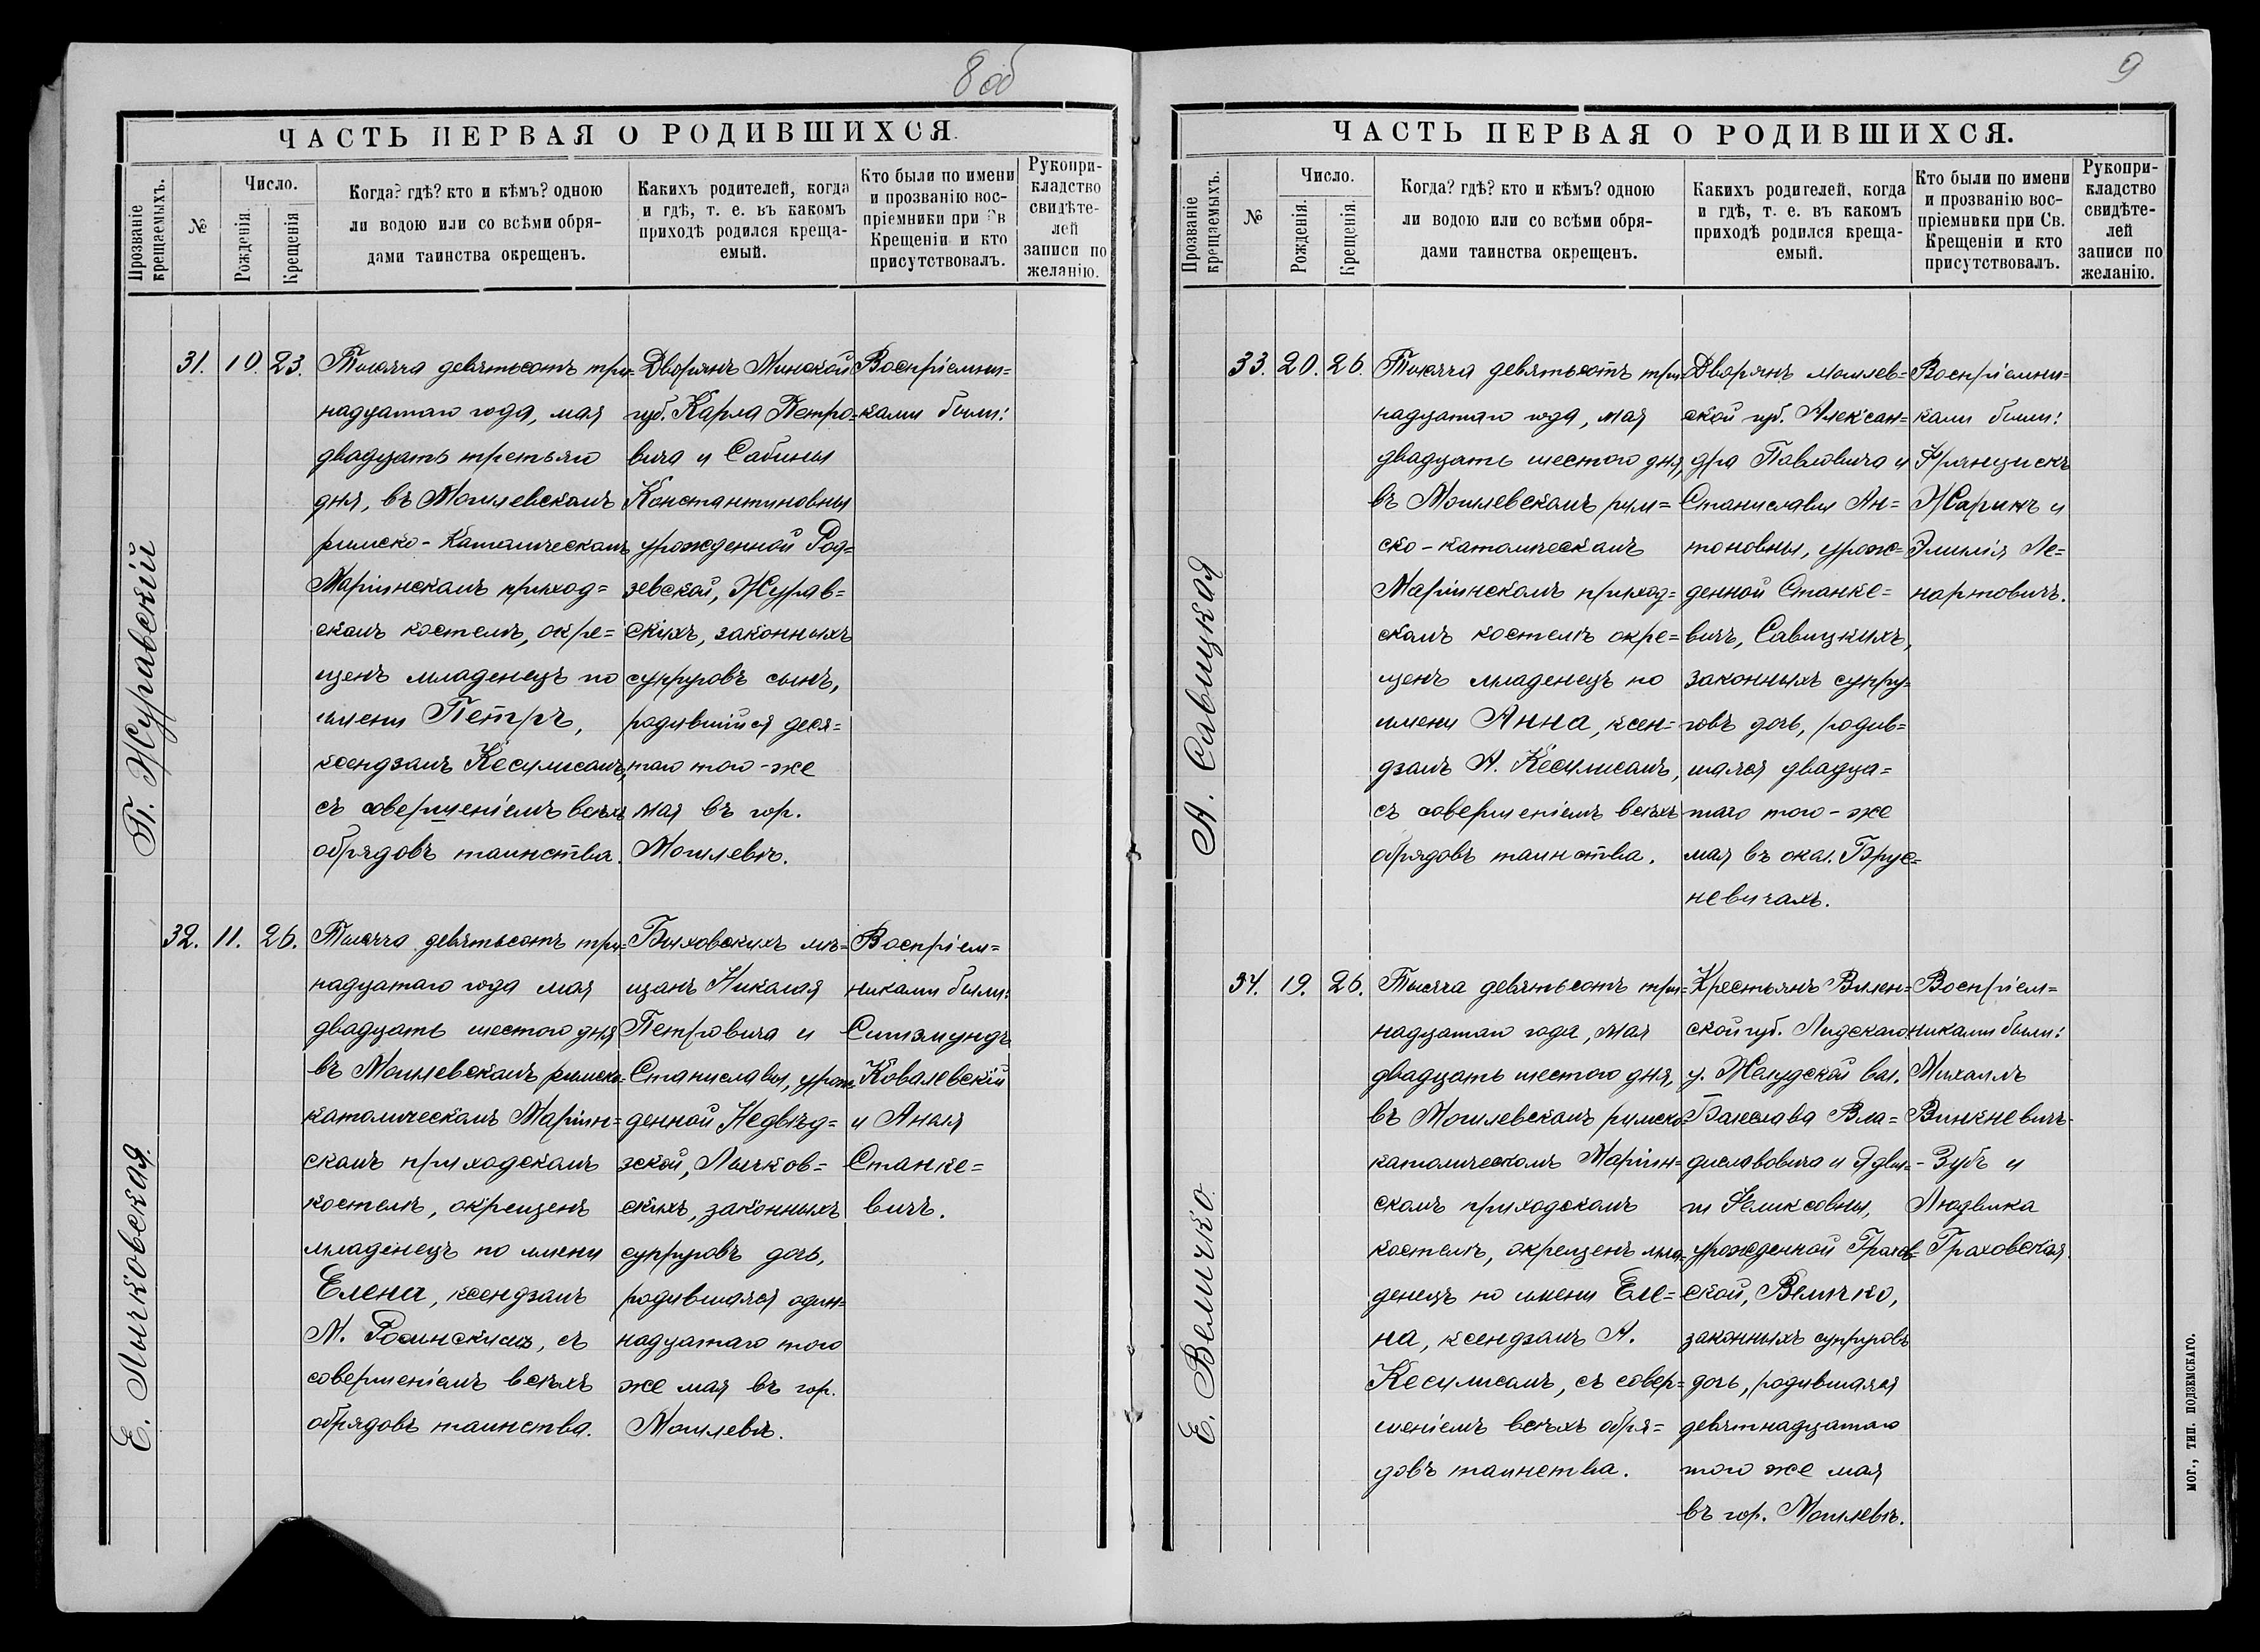 8 об
ЧАСТЬ ПЕРВАЯ О РОДИВШИХСЯ.
Прозваніе
крещаемыхъ.
№
Число.
Рожденія.
Крещенія
Когда? гдѣ? кто и кѣмъ? одною
ли водою или со всѣми обря-
дами таинства окрещенъ.
Какихъ родителей, когда
и гдѣ, т. е. въ какомъ
приходѣ родился креща-
емый.
Кто были по имени
и прозванію вос-
пріемники при Св
Крещеніи и кто
присутствовалъ.
Рукопри-
кладство
свидѣте-
лей
записи по
желанію.
П. Журавскій
31.
10.
23.
Тысяча девятьсотъ три=
надцатаго года, мая
двадцать третьяго
дня, въ Могилевскомъ
римско-католическомъ
Маріинскомъ приход=
скомъ костелѣ, окре=
щенъ младенецъ по
имени Петръ,
ксендзомъ Кесылисомъ,
съ совершеніемъ всѣхъ
обрядовъ таинства.
Дворянъ Минской
губ. Карла Петро=
вича и Сабины
Константиновны
урожденной Род=
зевской, Журав=
скихъ, законныхъ
супруговъ сынъ,
родившійся деся=
таго того-же
мая въ гор.
Могилевѣ.
Воспріемни=
ками были:
Е. Лычковская
32.
11.
26.
Тысяча девятьсотъ три=
надцатаго года мая
двадцать шестого дня
въ Могилевскомъ римско-
католическомъ Маріин=
скомъ приходскомъ
костелѣ, окрещенъ
младенецъ по имени
Елена, ксендзомъ
М. Росинскимъ, съ
совершеніемъ всѣхъ
обрядовъ таинства.
Быховскихъ мѣ=
щанъ Николая
Петровича и
Станиславы, урож=
денной Недвѣд=
зской, Лычков=
скихъ, законныхъ
супруговъ дочь,
родившаяся один=
надцатаго того
же мая въ гор.
Могилевѣ.
Воспріем=
никами были:
Сигизмундъ
Ковалевскій
и Анеля
Станке=
вичъ.
9
ЧАСТЬ ПЕРВАЯ О РОДИВШИХСЯ.
Прозваніе
крещаемыхъ.
№
Число.
Рожденія.
Крещенія.
Когда? гдѣ? кто и кѣмъ? одною
ли водою или со всѣми обря-
дами таинства окрещенъ.
Какихъ родителей, когда
и гдѣ, т. е. въ какомъ
приходѣ родился креща-
емый.
Кто были по имени
и прозванію вос-
пріемники при Св.
Крещеніи и кто
присутствовалъ.
Рукопри-
кладство
свидѣте-
лей
записи по
желанію.
А. Савицкая
33.
20.
26.
Тысяча девятьсотъ три=
надцатаго года, мая
двадцать шестого дня,
въ Могилевскомъ рим=
ско-католическомъ
Маріинскомъ приход=
скомъ костелѣ окре=
щенъ младенецъ по
имени Анна, ксен=
дзомъ А. Кесылисомъ,
съ совершеніемъ всѣхъ
обрядовъ таинства.
Дворянъ Могилев=
ской губ. Алексан=
дра Павловича и
Станиславы Ан=
тоновны, урож=
денной Станке=
вичъ, Савицкихъ,
законныхъ супру=
говъ дочь, родив=
шаяся двадца=
таго того-же
мая въ окол. Брус=
невичахъ.
Воспріемни=
ками были:
Францискъ
Жаринъ и
Эмилія Ле=
нартовичъ.
Е. Величко.
34.
19.
26.
Тысяча девятьсотъ три=
надцатаго года, мая
двадцать шестого дня,
въ Могилевскомъ римско-
католическомъ Маріин=
скомъ приходскомъ
костелѣ, окрещенъ мла=
денецъ по имени Еле=
на, ксендзомъ А.
Кесылисомъ, съ совер=
шеніемъ всѣхъ обря=
довъ таинства.
Крестьянъ Вилен=
ской губ. Лидскаго
у. Желудской вол.
Болеслава Вла=
диславовича и Ядви=
ги Феликсовны,
урожденной Грахов=
ской, Величко,
законныхъ супруговъ
дочь, родившаяся
девятнадцатаго
того же мая
въ гор. Могилевѣ.
Воспріем=
никами были:
Михаилъ
Винкневичъ-
-Зубъ и
Людвика
Граховская.
МОГ., ТИП. ПОДЗЕМСКАГО.